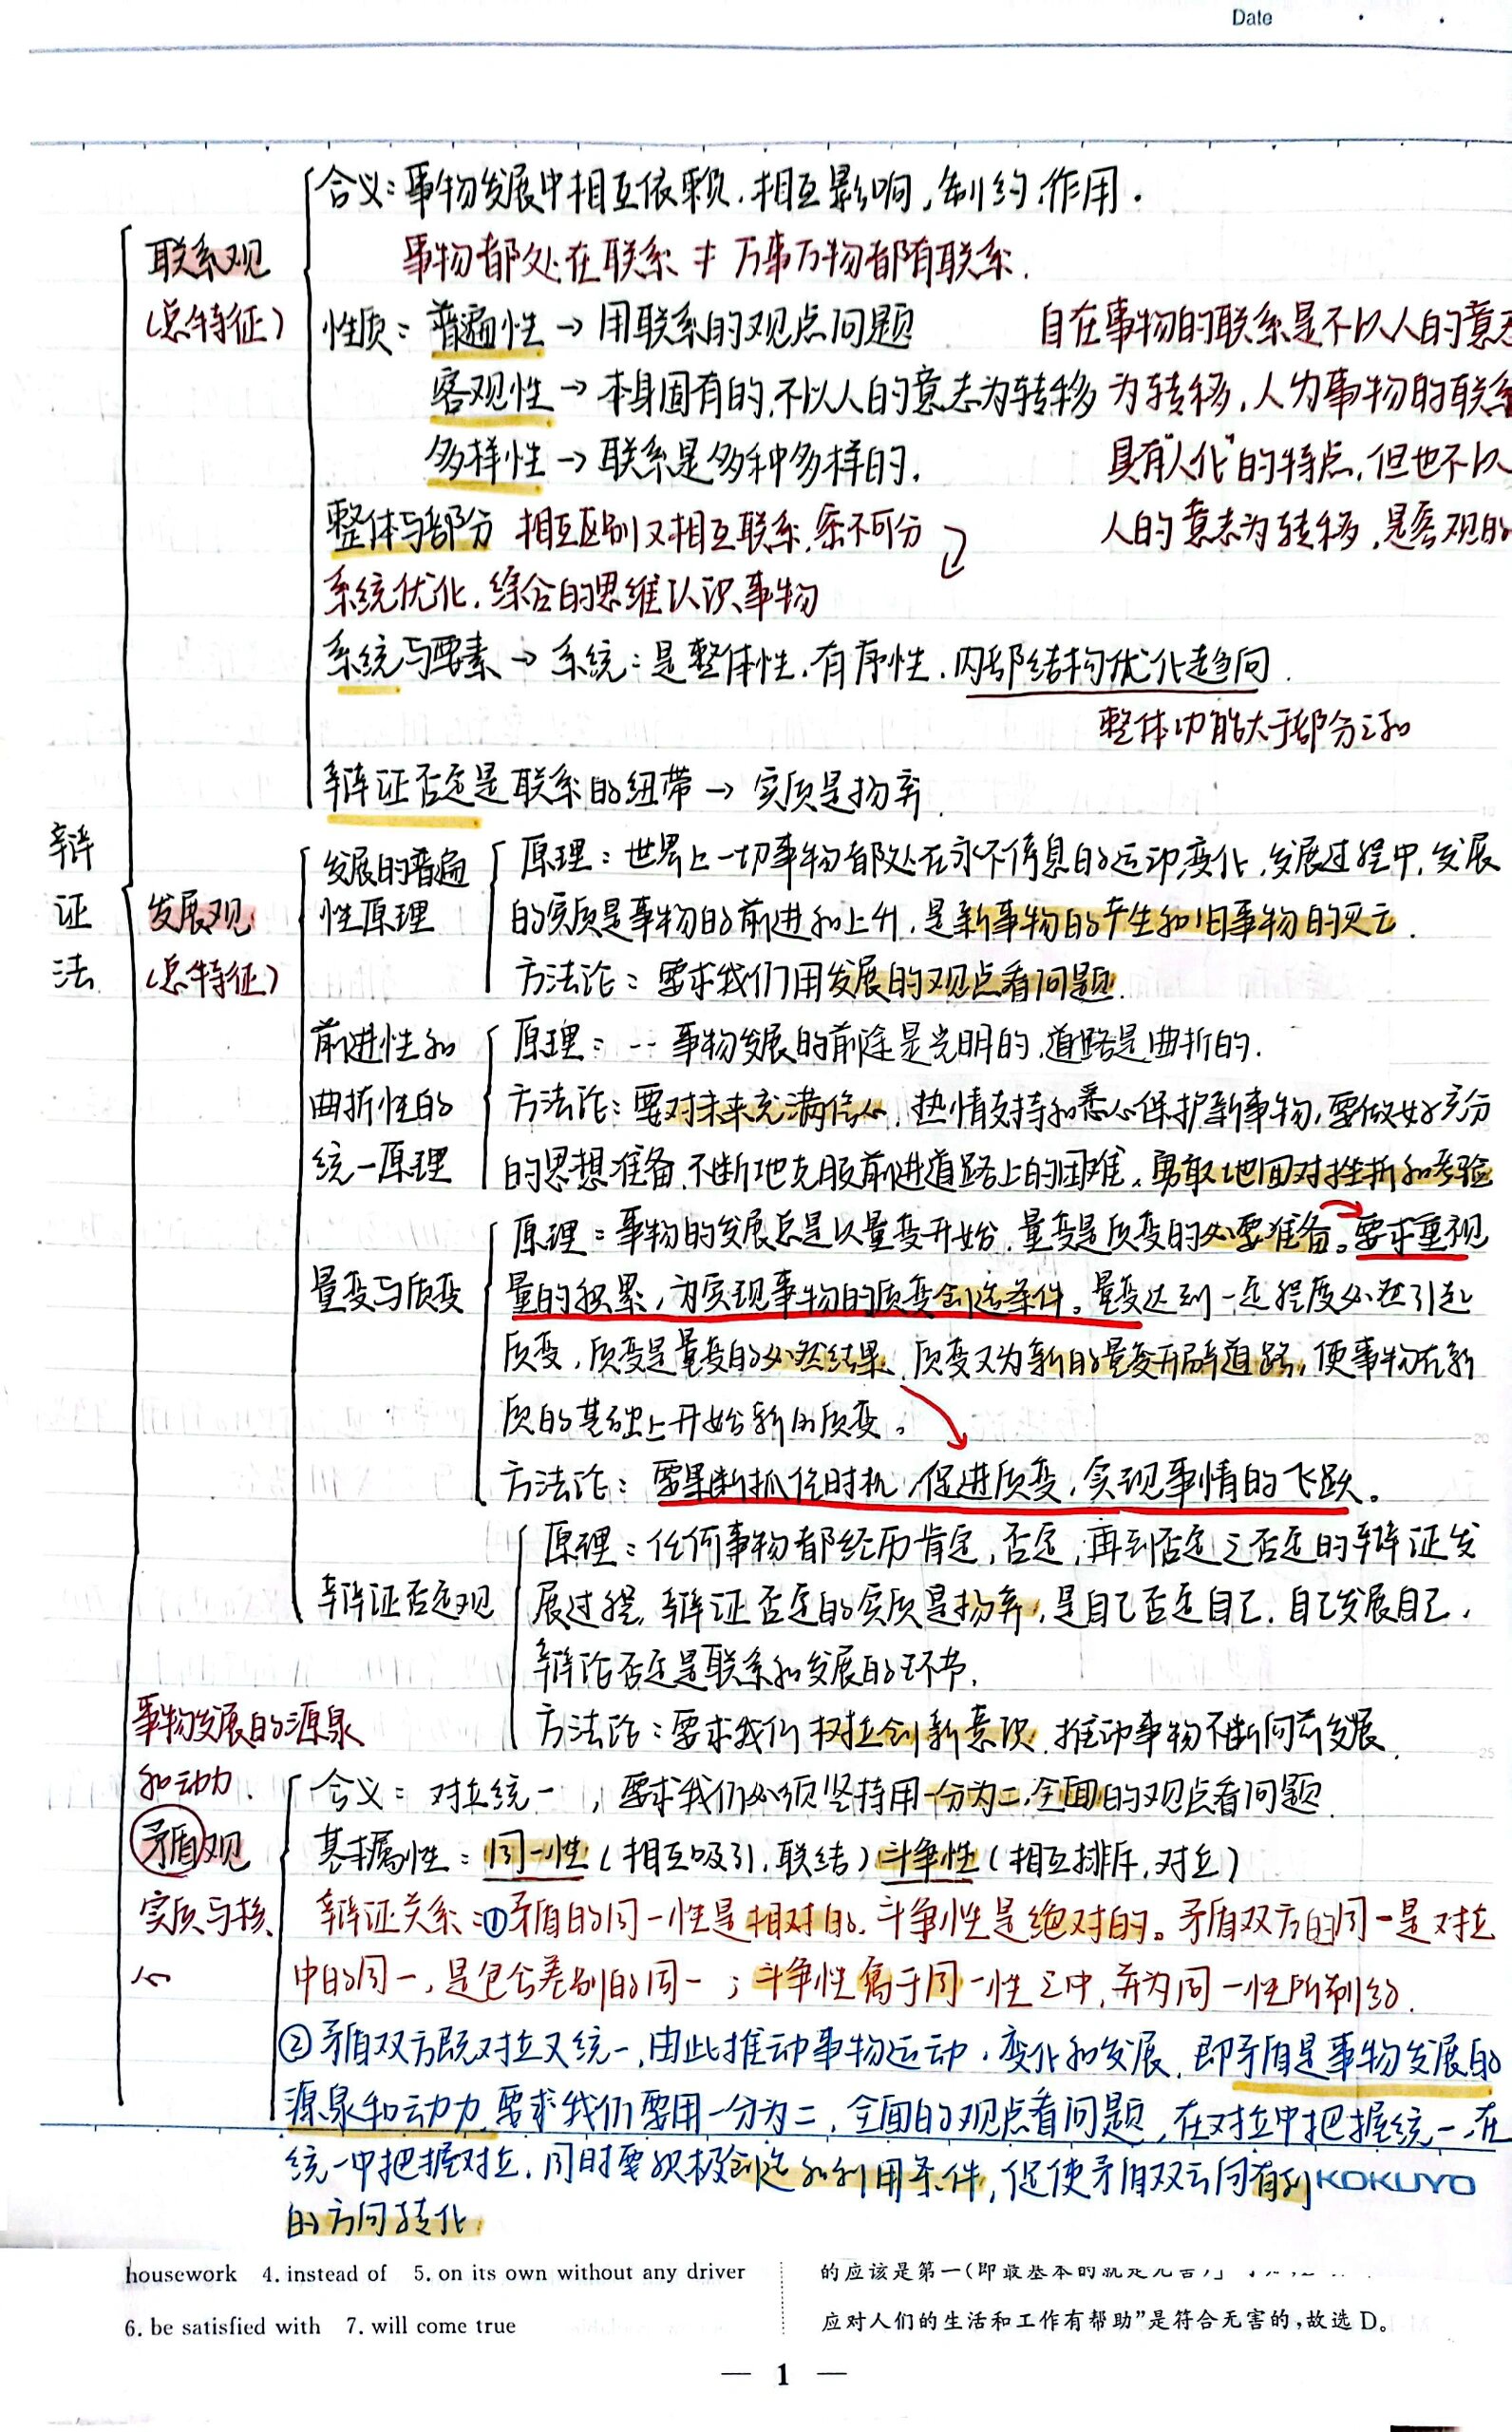 Date
含义：事物发展中相互依赖.相互影响,制约.作用.
联系观
事物都处在联系 ≠ 万事万物都有联系.
(总特征)
性质：普遍性 → 用联系的观点问题
自在事物的联系是不以人的意志
客观性 → 本身固有的,不以人的意志为转移
为转移,人为事物的联系
多样性 → 联系是多种多样的.
具有"人化"的特点,但也不以
整体与部分 相互区别又相互联系,密不可分
人的意志为转移,是客观的
系统优化,综合的思维认识事物
系统与要素 → 系统：是整体性.有序性.内部结构优化趋向.
整体功能大于部分之和
辩证否定是联系的纽带 → 实质是扬弃.
辩证法
发展的普遍
性原理
原理：世界上一切事物都处在永不停息的运动变化,发展过程中,发展
发展观
的实质是事物的前进和上升,是新事物的产生和旧事物的灭亡.
(总特征)
方法论：要求我们用发展的观点看问题.
前进性和
曲折性的
统一原理
原理：-- 事物发展的前途是光明的,道路是曲折的.
方法论：要对未来充满信心,热情支持和悉心保护新事物,要做好充分
的思想准备,不断地克服前进道路上的困难,勇敢地面对挫折和考验
量变与质变
原理：事物的发展总是以量变开始,量变是质变的必要准备。要求重视
量的积累,为实现事物的质变创造条件。量变达到一定程度必然引起
质变,质变是量变的必然结果,质变又为新的量变开辟道路,使事物在新
质的基础上开始新的质变。
方法论：要果断抓住时机,促进质变,实现事情的飞跃。
辩证否定观
原理：任何事物都经历肯定,否定,再到否定之否定的辩证发
展过程,辩证否定的实质是扬弃,是自己否定自己,自己发展自己,
辩论否定是联系和发展的环节.
方法论：要求我们树立创新意识,推动事物不断向前发展.
事物发展的源泉
和动力.
矛盾观
实质与核
心
含义：对立统一,要求我们必须坚持用一分为二,全面的观点看问题
基本属性：同一性(相互吸引,联结)斗争性(相互排斥,对立)
辩证关系：①矛盾的同一性是相对的.斗争性是绝对的。矛盾双方的同一是对立
中的同一,是包含差别的同一；斗争性寓于同一性之中,并为同一性所制约.
②矛盾双方既对立又统一,由此推动事物运动.变化和发展.即矛盾是事物发展的
源泉和动力.要求我们要用一分为二,全面的观点看问题,在对立中把握统一,在
统一中把握对立.同时要积极创造和利用条件,促使矛盾双方向有利
KOKUYO
的方向转化
housework 4. instead of 5. on its own without any driver
6. be satisfied with 7. will come true
的应该是第一(即最基本的就是无害)
应对人们的生活和工作有帮助”是符合无害的,故选 D。
— 1 —